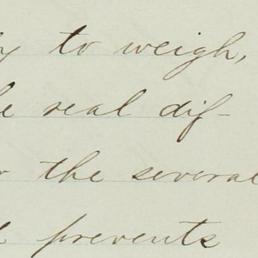 to weigh,
real dif-
the several
prevents